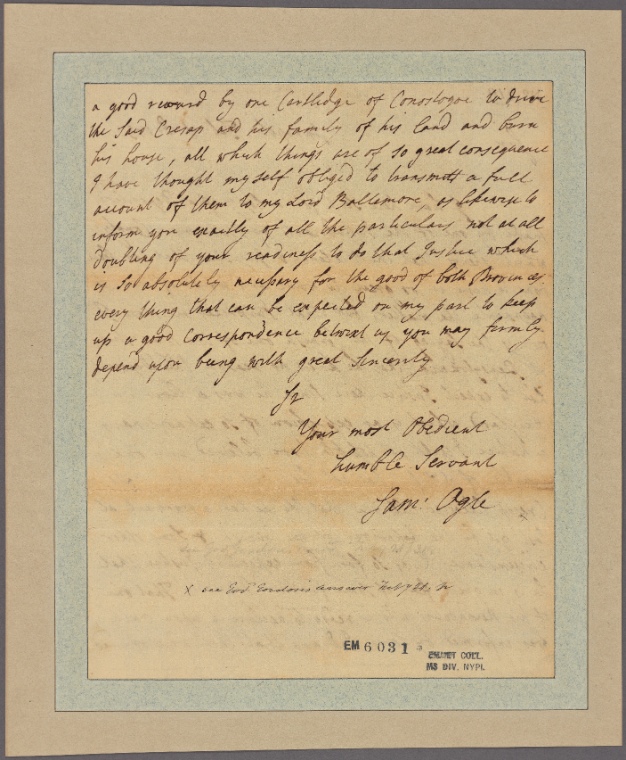 a good reward by one Cartlidge of Conostogoe to drive
the Said Cresap and his family of his land and burn
his house, all which things are of so great consequence
I have thought myself obliged to transmitt a full
account of them to my Lord Baltemore, as likewise to
inform you exactly of all the particulars not at all
doubting of your readiness to do that Justice which
is so absolutely necessary for the good of both Provinces
every thing that can be expected on my part to keep
up a good Correspondence betwixt us you may firmly
depend upon being with great Sincerity
Sr
Your most Obedient
humble Servant
Sam: Ogle
X see Govr Gordon's answer
EM 6031
EMMET COLL.
MS DIV. NYPL.